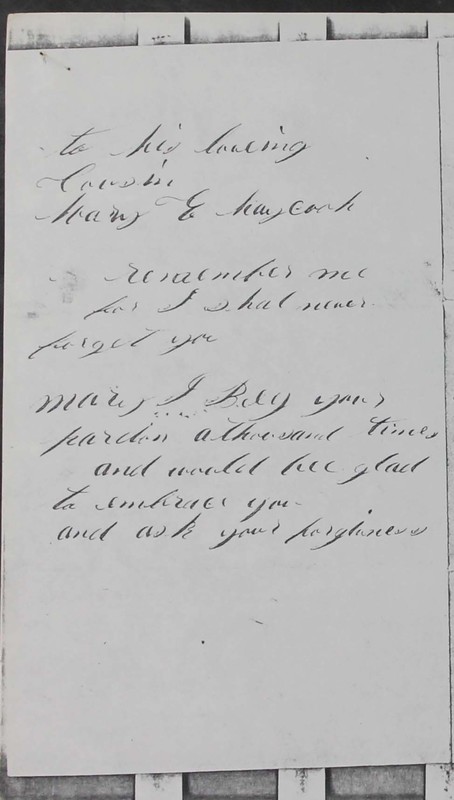 to his loveing
Cousin
Mary E Maycock
remember me
for I shal never
forget you
mary I Beg your
pardon a thousand times
and would bee glad
to embrace you
and ask your forgiveness